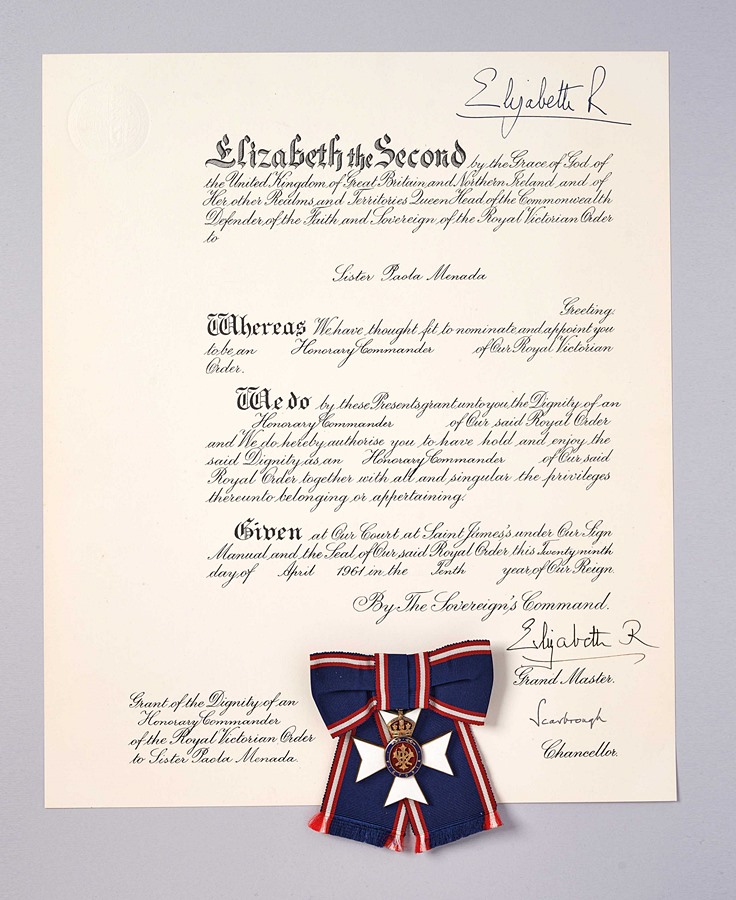 Elizabeth R
Elizabeth the Second by the Grace of God of
the United Kingdom of Great Britain and Northern Ireland and of
Her other Realms and Territories Queen Head of the Commonwealth
Defender of the Faith and Sovereign of the Royal Victorian Order
to
Sister Paola Menada
Greeting:
Whereas We have thought fit to nominate and appoint you
to be an Honorary Commander of Our Royal Victorian
Order.
We do by these Presents grant unto you the Dignity of an
Honorary Commander of Our said Royal Order
and We do hereby authorise you to have hold and enjoy the
said Dignity as an Honorary Commander of Our said
Royal Order together with all and singular the privileges
thereunto belonging or appertaining.
Given at Our Court at Saint James's under Our Sign
Manual and the Seal of Our said Royal Order this Twenty ninth
day of April 1961 in the Tenth year of Our Reign.
By The Sovereign's Command.
Elizabeth R
Grand Master.
Scarbrough
Chancellor.
Grant of the Dignity of an
Honorary Commander
of the Royal Victorian Order
to Sister Paola Menada.